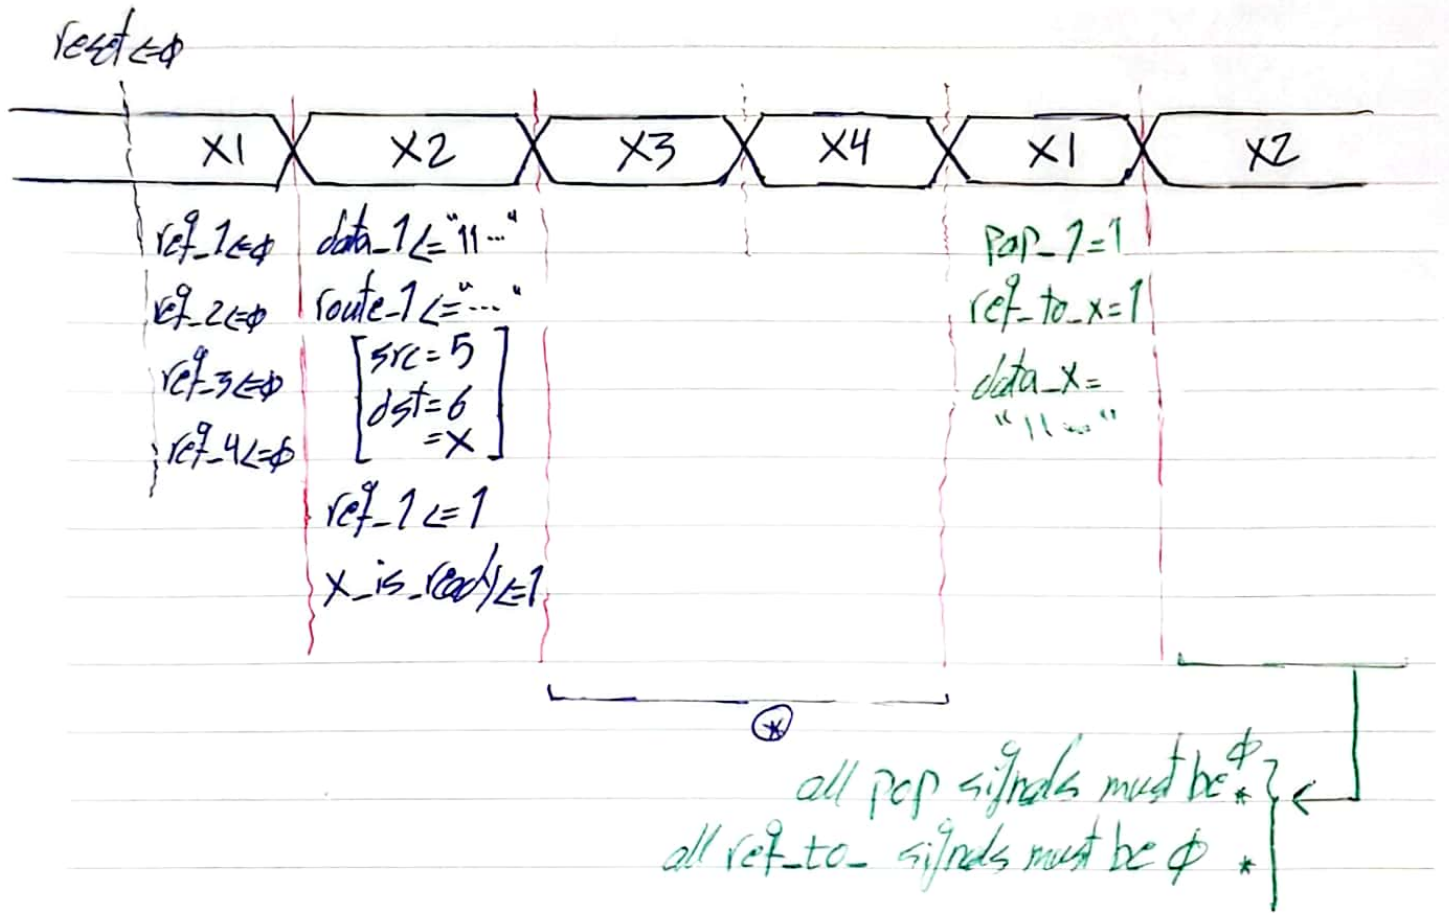 reset<=φ
X1 X2 X3 X4 X1 X2
req_1<=φ
req_2<=φ
req_3<=φ
req_4<=φ
data_1<="11..."
route_1<="..."
src=5
dst=6
=X
req_1<=1
X_is_ready<=1
*
pop_1=1
req_to_x=1
data_x=
"11..."
all pop signals must be φ *
all req_to_ signals must be φ *